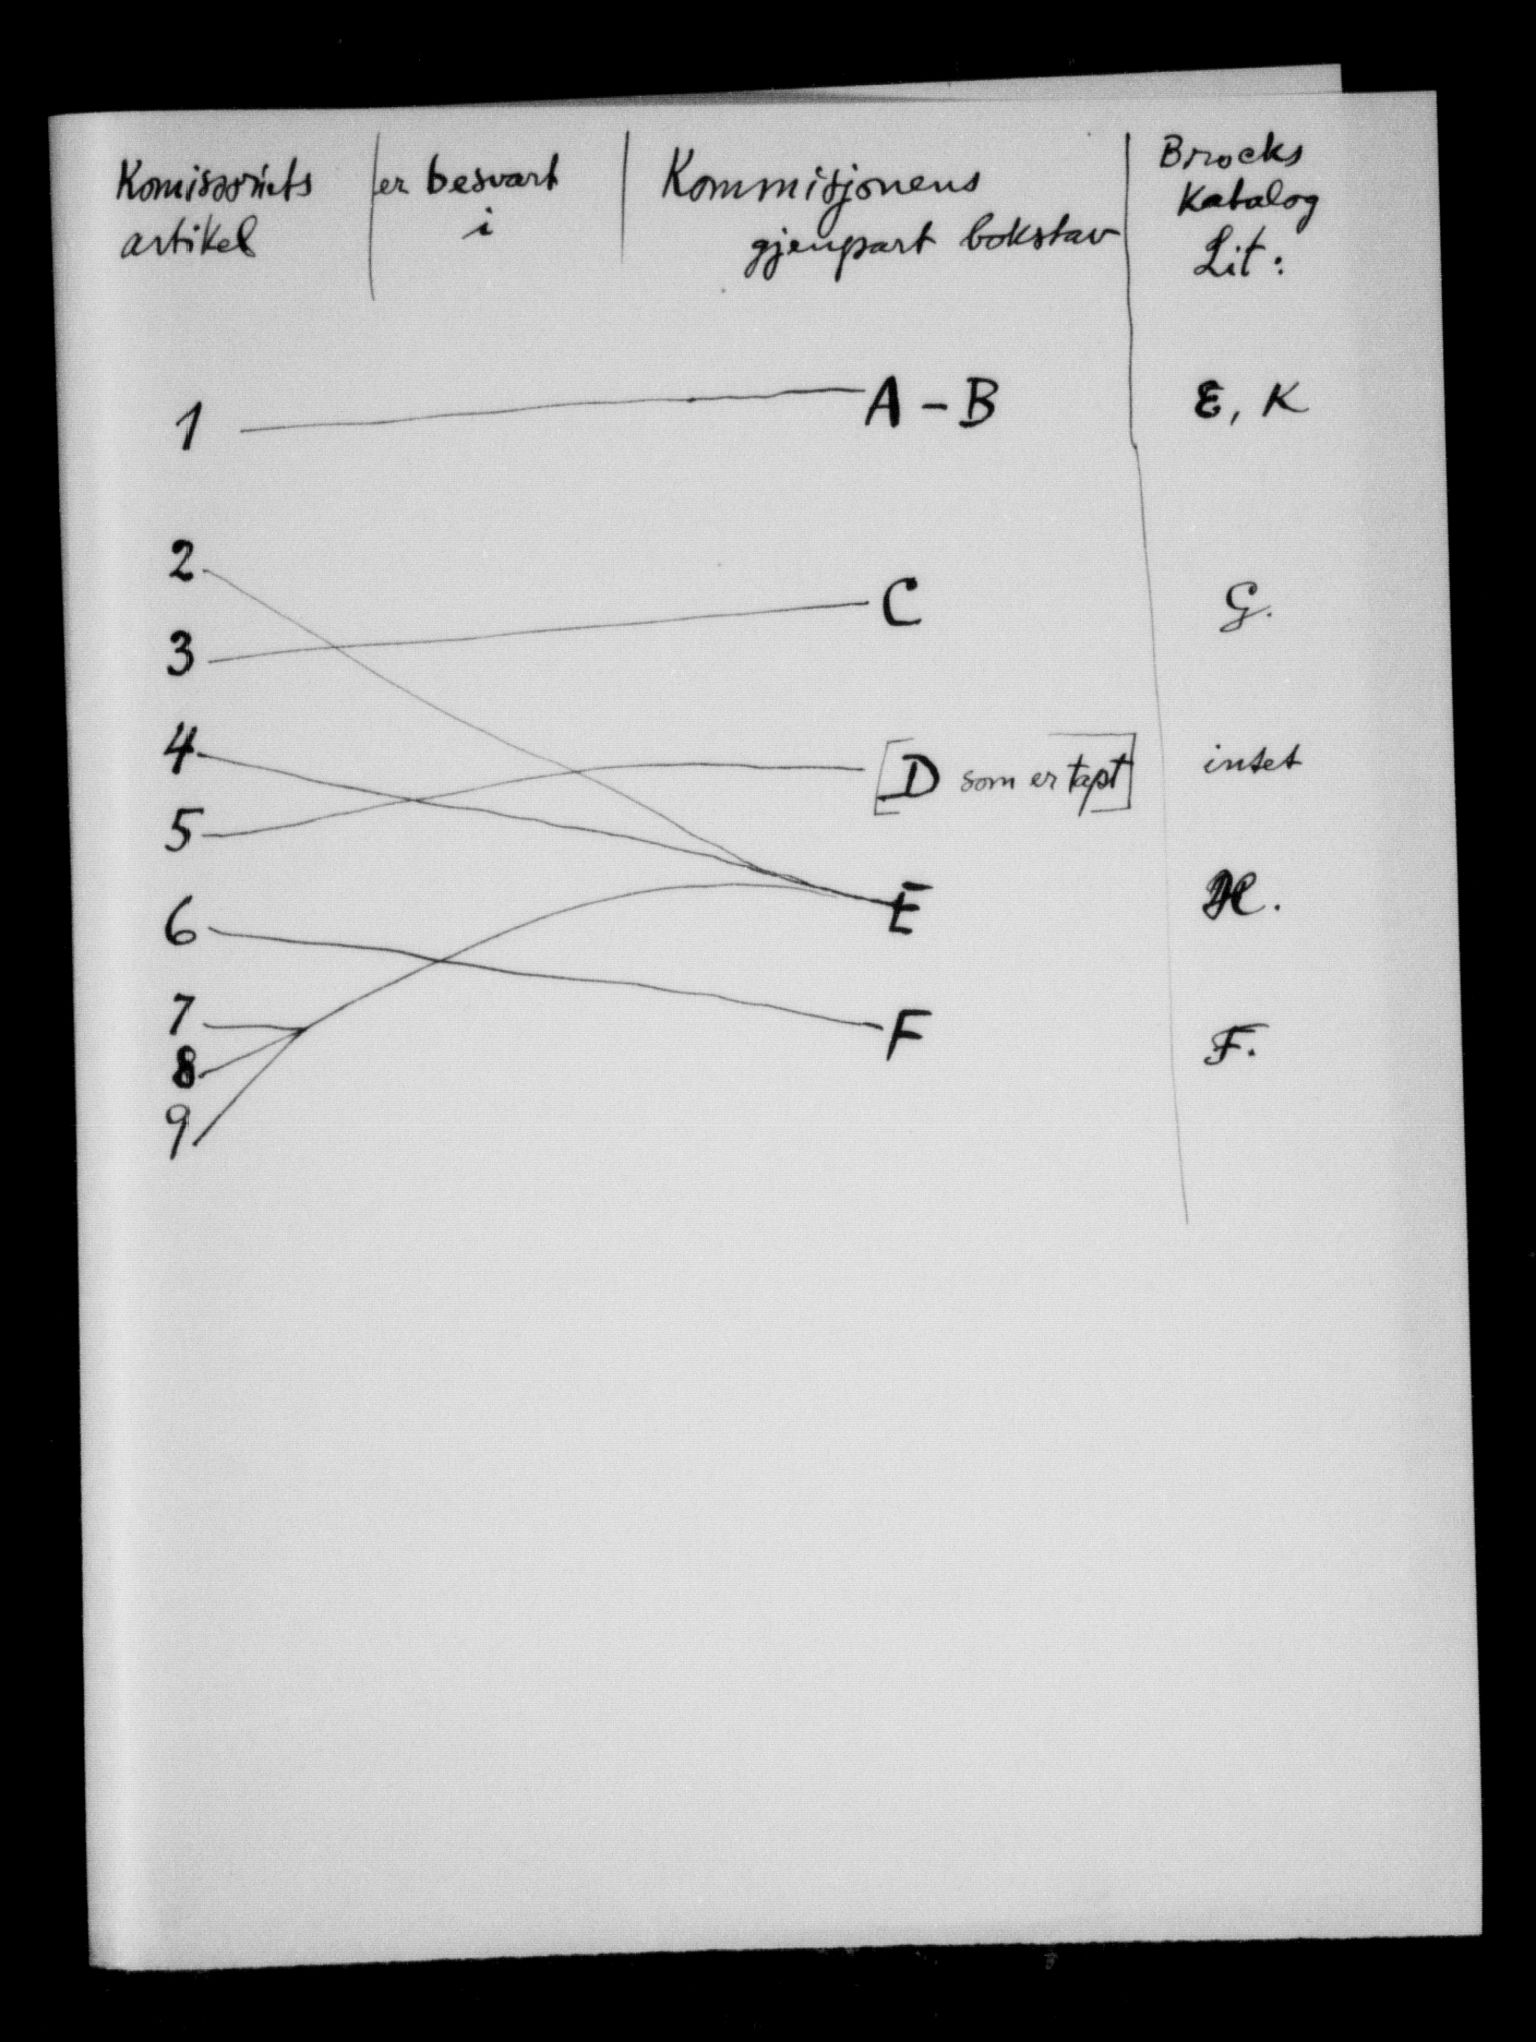 Komissoriets
artikel
er besvart
i
Kommisjonens
gjenpart bokstav
Brocks
Katalog
Lit:
1 A - B E, K
2
3 C G.
4
5 [D som er tapt] intet
6 E H.
7 F F.
8
9